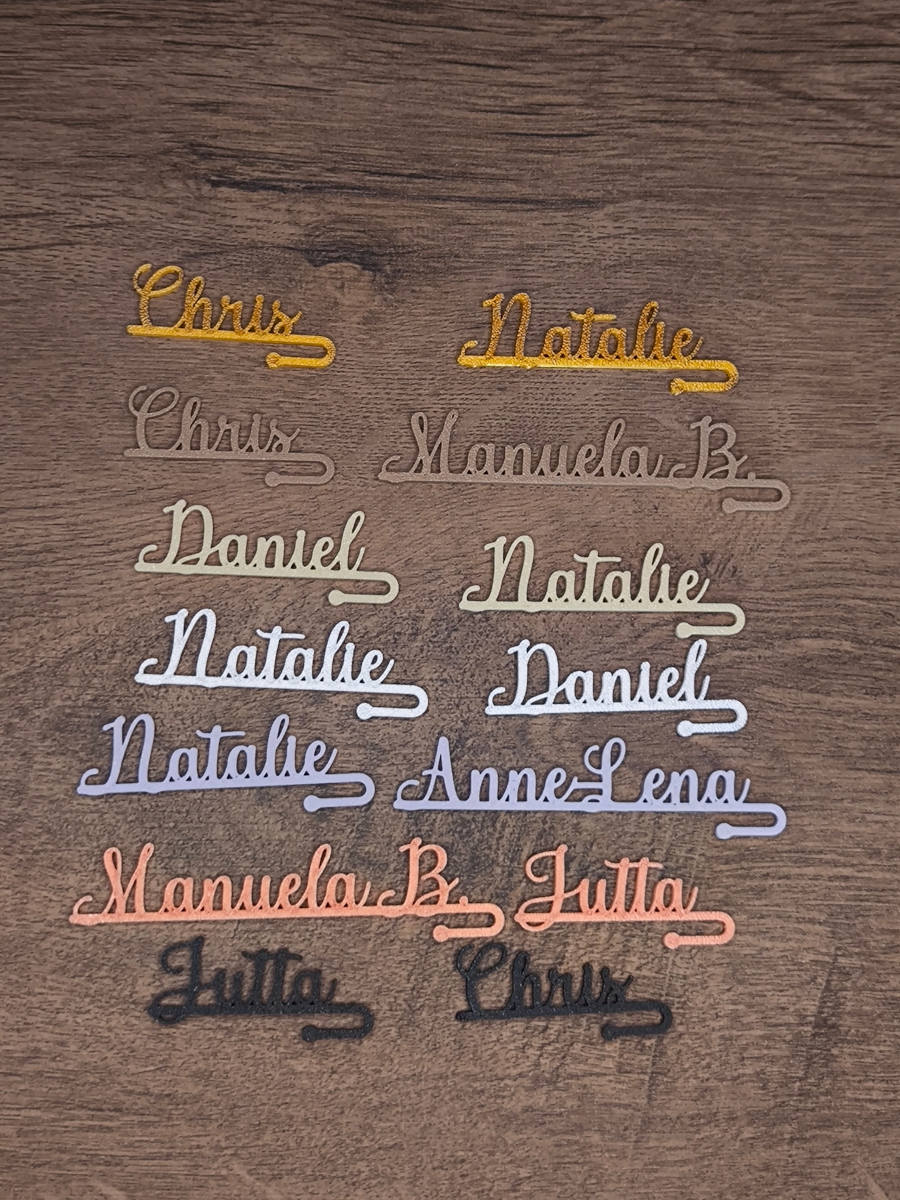 Chris Natalie
Chris Manuela B.
Daniel Natalie
Natalie Daniel
Natalie AnneLena
Manuela B. Jutta
Jutta Chris